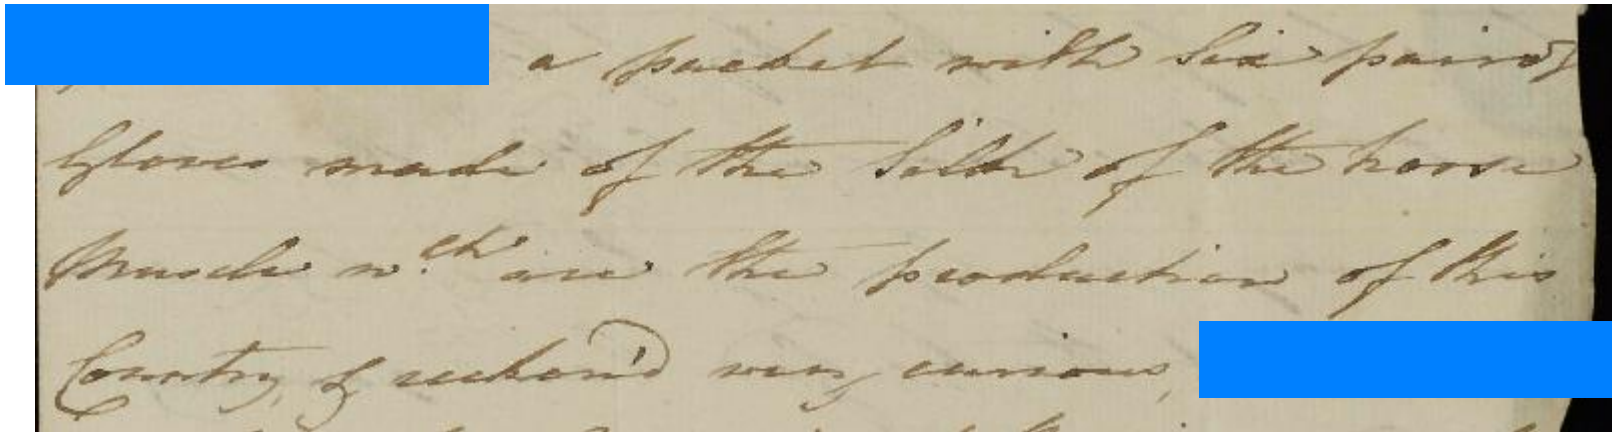 a packet with Six pair of
Gloves made of the Silk of the horse
Muscle wch are the production of this
Country, & reckon'd very curious,